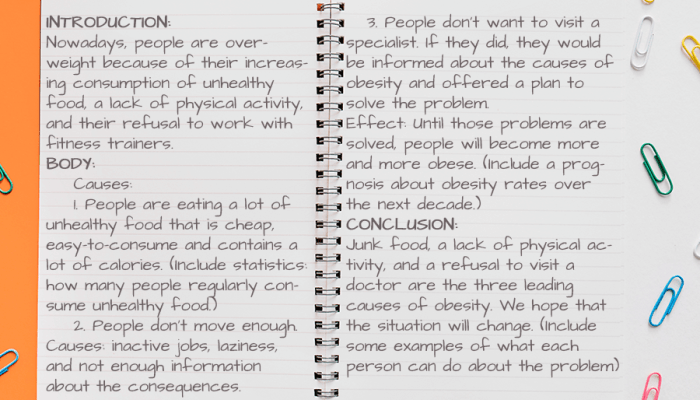 INTRODUCTION:
Nowadays, people are over-
weight because of their increas-
ing consumption of unhealthy
food, a lack of physical activity,
and their refusal to work with
fitness trainers.
BODY:
Causes:
1. People are eating a lot of
unhealthy food that is cheap,
easy-to-consume and contains a
lot of calories. (Include statistics:
how many people regularly con-
sume unhealthy food.)
2. People don't move enough.
Causes: inactive jobs, laziness,
and not enough information
about the consequences.
3. People don't want to visit a
specialist. If they did, they would
be informed about the causes of
obesity and offered a plan to
solve the problem.
Effect: Until those problems are
solved, people will become more
and more obese. (Include a prog-
nosis about obesity rates over
the next decade.)
CONCLUSION:
Junk food, a lack of physical ac-
tivity, and a refusal to visit a
doctor are the three leading
causes of obesity. We hope that
the situation will change. (Include
some examples of what each
person can do about the problem)